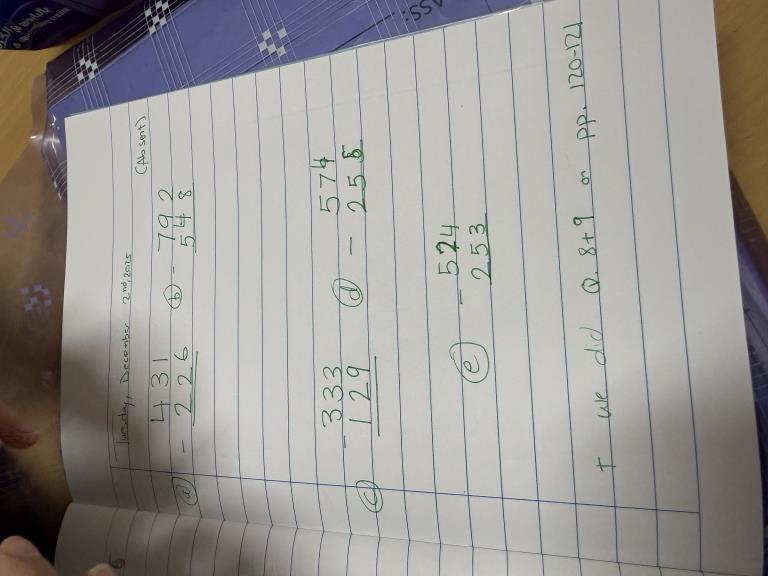 ASS:
Tuesday, December 2nd, 2025
(Absent)
(a) - 431 (b) - 792
226 548
(c) - 333 (d) - 574
129 255
(e) - 524
253
+ we did Q. 8+9 on pp. 120-121